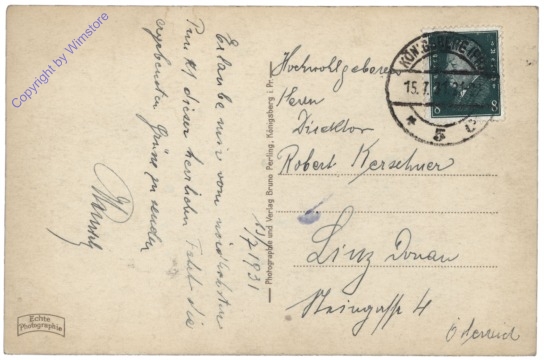 Copyright by Wimstore
Erlaube mir vom nördlichsten
Punkt dieser herrlichen Fahrt die
ergebensten Grüsse zu senden
15/7 1931
Echte
Photographie
Photographie und Verlag Bruno Perling, Königsberg i. Pr.
15.7.31
* 5 c
8 8
Hochwohlgeboren
Herrn
Direktor
Robert Kerschner
Linz Donau
Steingasse 4
Österreich